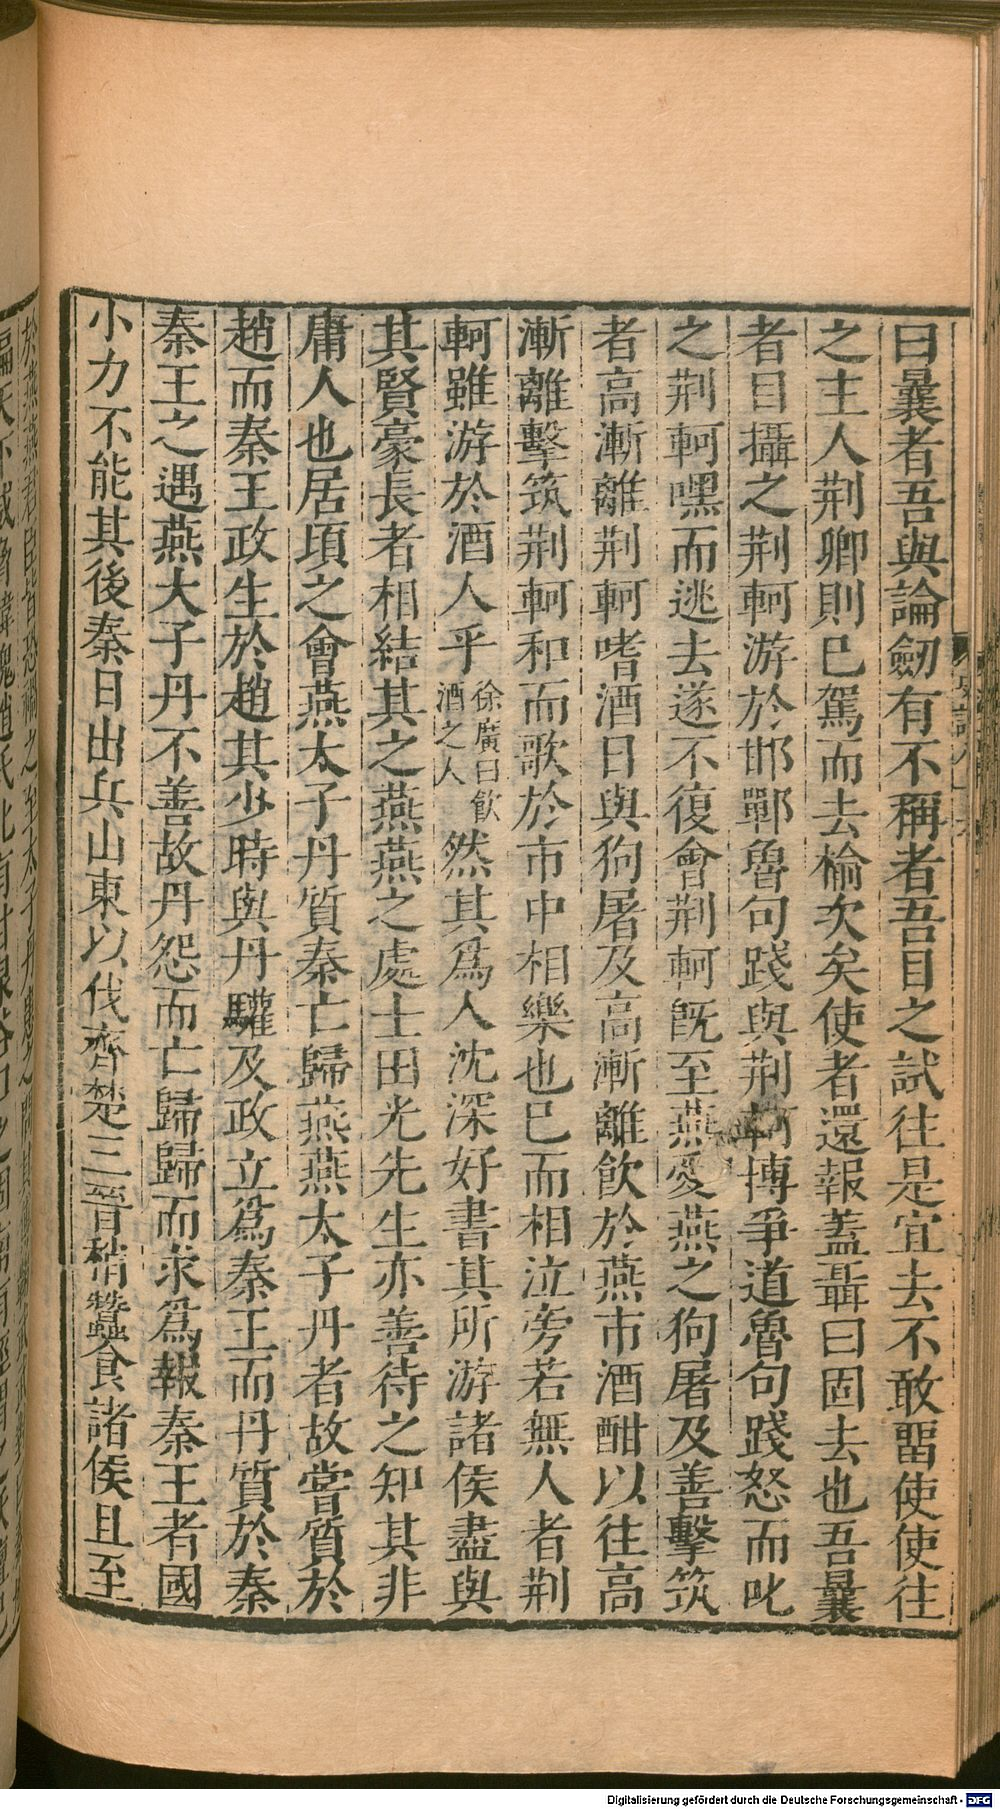 曰曩者吾與論劒有不稱者吾目之試往是宜去不敢畱使使往
之主人荆卿則已駕而去榆次矣使者還報蓋聶曰固去也吾曩
者目攝之荆軻游於邯鄲魯句踐與荆軻博爭道魯句踐怒而叱
之荆軻嘿而逃去遂不復會荆軻旣至燕愛燕之狗屠及善擊筑
者高漸離荆軻嗜酒日與狗屠及高漸離飲於燕市酒酣以往高
漸離擊筑荆軻和而歌於市中相樂也已而相泣旁若無人者荆
軻雖游於酒人乎徐廣曰飲酒之人然其爲人沈深好書其所游諸侯盡與
其賢豪長者相結其之燕燕之處士田光先生亦善待之知其非
庸人也居頃之會燕太子丹質秦亡歸燕燕太子丹者故嘗質於
趙而秦王政生於趙其少時與丹驩及政立爲秦王而丹質於秦
秦王之遇燕太子丹不善故丹怨而亡歸歸而求爲報秦王者國
小力不能其後秦日出兵山東以伐齊楚三晉稍蠶食諸侯且至
Digitalisierung gefördert durch die Deutsche Forschungsgemeinschaft - DFG